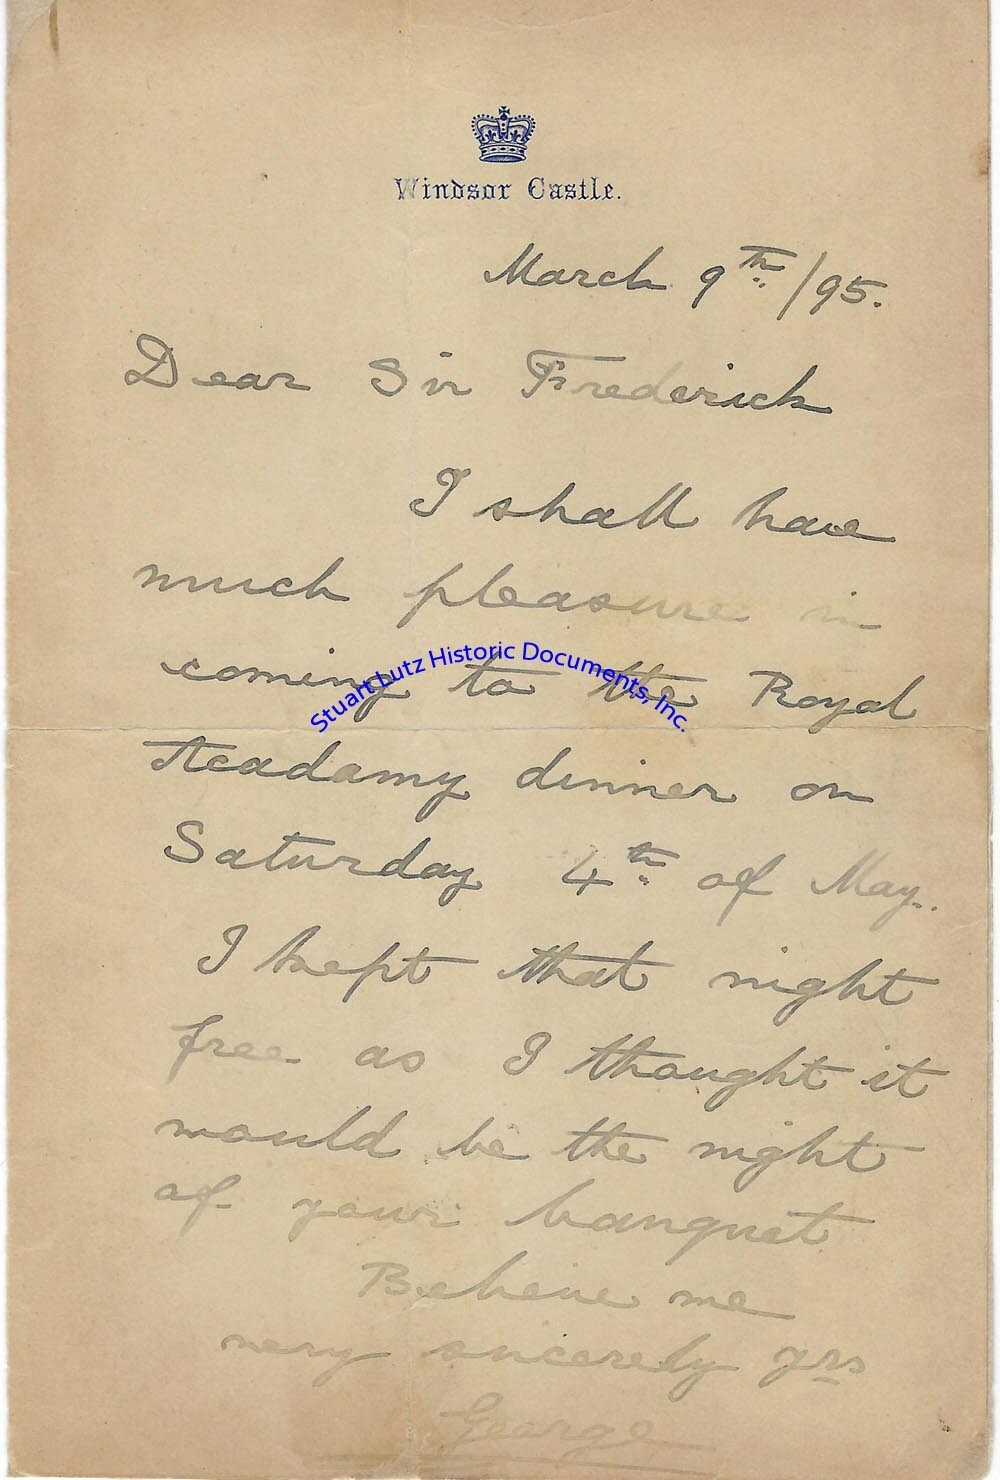 Windsor Castle.
March 9th /95.
Dear Sir Frederick
I shall have
much pleasure in
coming to the Royal
Acadamy dinner on
Saturday 4th of May.
I kept that night
free as I thought it
would be the night
of your banquet
Believe me
very sincerely yrs
George
Stuart Lutz Historic Documents, Inc.